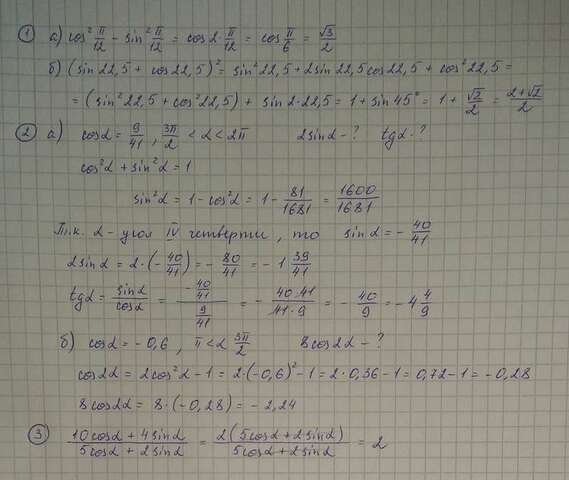 ① а) cos² π/12 − sin² π/12 = cos 2·π/12 = cos π/6 = √3/2
б) (sin 22,5 + cos 22,5)² = sin² 22,5 + 2 sin 22,5 cos 22,5 + cos² 22,5 =
= (sin² 22,5 + cos² 22,5) + sin 2·22,5 = 1 + sin 45° = 1 + √2/2 = (2+√2)/2
② а) cos α = 9/41, 3π/2 < α < 2π 2 sin α - ? tg α - ?
cos² α + sin² α = 1
sin² α = 1 − cos² α = 1 − 81/1681 = 1600/1681
Т.к. α - угол IV четверти, то sin α = − 40/41
2 sin α = 2·(− 40/41) = − 80/41 = − 1 39/41
tg α = sin α/cos α = (− 40/41)/(9/41) = − 40·41/41·9 = − 40/9 = − 4 4/9
б) cos α = − 0,6, π < α 3π/2 8 cos 2α - ?
cos 2α = 2 cos² α − 1 = 2·(−0,6)² − 1 = 2·0,36 − 1 = 0,72 − 1 = − 0,28
8 cos 2α = 8·(−0,28) = − 2,24
③ (10 cos α + 4 sin α)/(5 cos α + 2 sin α) = 2(5 cos α + 2 sin α)/(5 cos α + 2 sin α) = 2